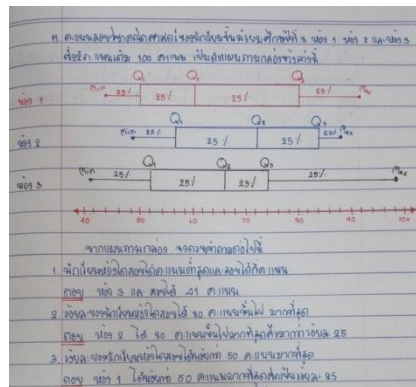 คะแนนสอบวิชาคณิตศาสตร์ของนักเรียนชั้นมัธยมศึกษาปีที่ 3 ห้อง 1 ห้อง 2 และห้อง 3
คะแนนเต็ม 100 คะแนน เป็นดังแผนภาพกล่องข้างล่างนี้
Q₁ Q₂ Q₃
ห้อง 1 Min 25% 25% 25% 25% Max
Q₁ Q₂ Q₃
ห้อง 2 25% 25% 25% 25% Max
Min Q₁ Q₂ Q₃
ห้อง 3 25% 25% 25% 25% Max
40 50 60 70 80 90 100
จากแผนภาพกล่อง จงตอบคำถามต่อไปนี้
1. นักเรียนห้องใดสอบได้คะแนนต่ำสุดและสอบได้กี่คะแนน
ตอบ ห้อง 3 และสอบได้ 41 คะแนน
2. ร้อยละของนักเรียนห้องใดสอบได้ 80 คะแนนขึ้นไป มากที่สุด
ตอบ ห้อง 2 ได้ 80 คะแนนขึ้นไปมากที่สุดคือมากกว่าร้อยละ 25
3. ร้อยละของนักเรียนห้องใดสอบได้น้อยกว่า 50 คะแนนมากที่สุด
ตอบ ห้อง 1 ได้น้อยกว่า 50 คะแนนมากที่สุดคิดเป็นร้อยละ 25